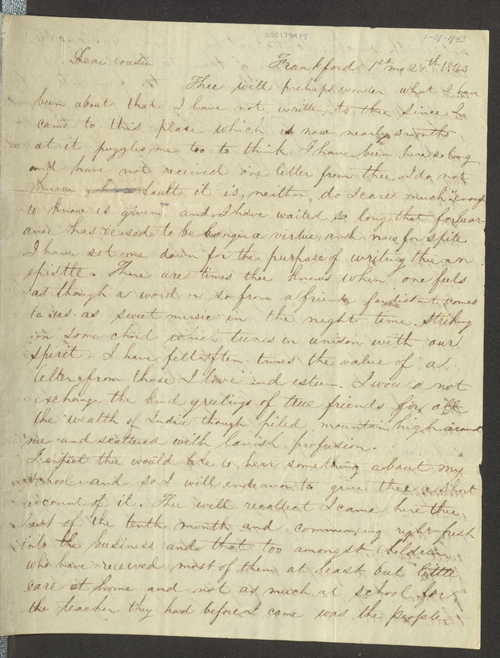 1-28-1843
Dear Cousin
Frankford 1st mo 28th 1843
Thee will perhaps wonder what I have
been about that I have not written to thee since I
came to this place which is now nearly 3 months
at it puzzles me too to think I have been here so long
and have not received one letter from thee I do not
know fault it is, neither do I care much "enough
to know is given" and I have waited so long that forbear-
ance has ceased to be longer a virtue and now for spite
I have set me down for the purpose of writing thee an
epistle. There are times thee knows when one feels
as though a word or so from a friend far distant comes
to us as sweet music in the night time. Striking
on some chord which tunes in unison with our
spirit. I have felt often times the value of a
letter from those I love and esteem. I would not
exchange the kind greetings of true friends for all
the wealth of India though piled mountain high around
me and scattered with lavish profusion.
I expect thee would like to hear something about my
school and so I will endeavor to give thee a short
account of it. Thee will recollect I came here the
last of the tenth month and commencing right fresh
into the business and that too amongst children
who have received most of them at least but little
care at home and not as much at school for
the teacher they had before I came was the people